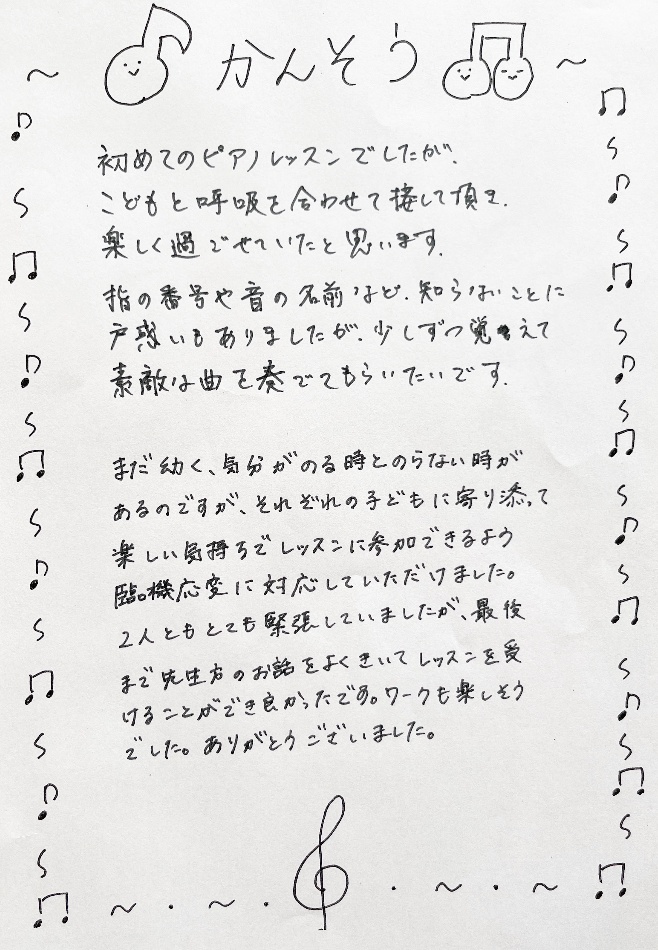 かんそう
初めてのピアノレッスンでしたが、
こどもと呼吸を合わせて接して頂き、
楽しく過ごせていたと思います。
指の番号や音の名前など、知らないことに
戸惑いもありましたが、少しずつ覚えて
素敵な曲を奏でてもらいたいです。
まだ幼く、気分がのる時とのらない時が
あるのですが、それぞれの子どもに寄り添って
楽しい気持ちでレッスンに参加できるよう
臨機応変に対応していただけました。
2人ともとても緊張していましたが、最後
まで先生方のお話をよくきいてレッスンを受
けることができ良かったです。ワークも楽しそう
でした。ありがとうございました。